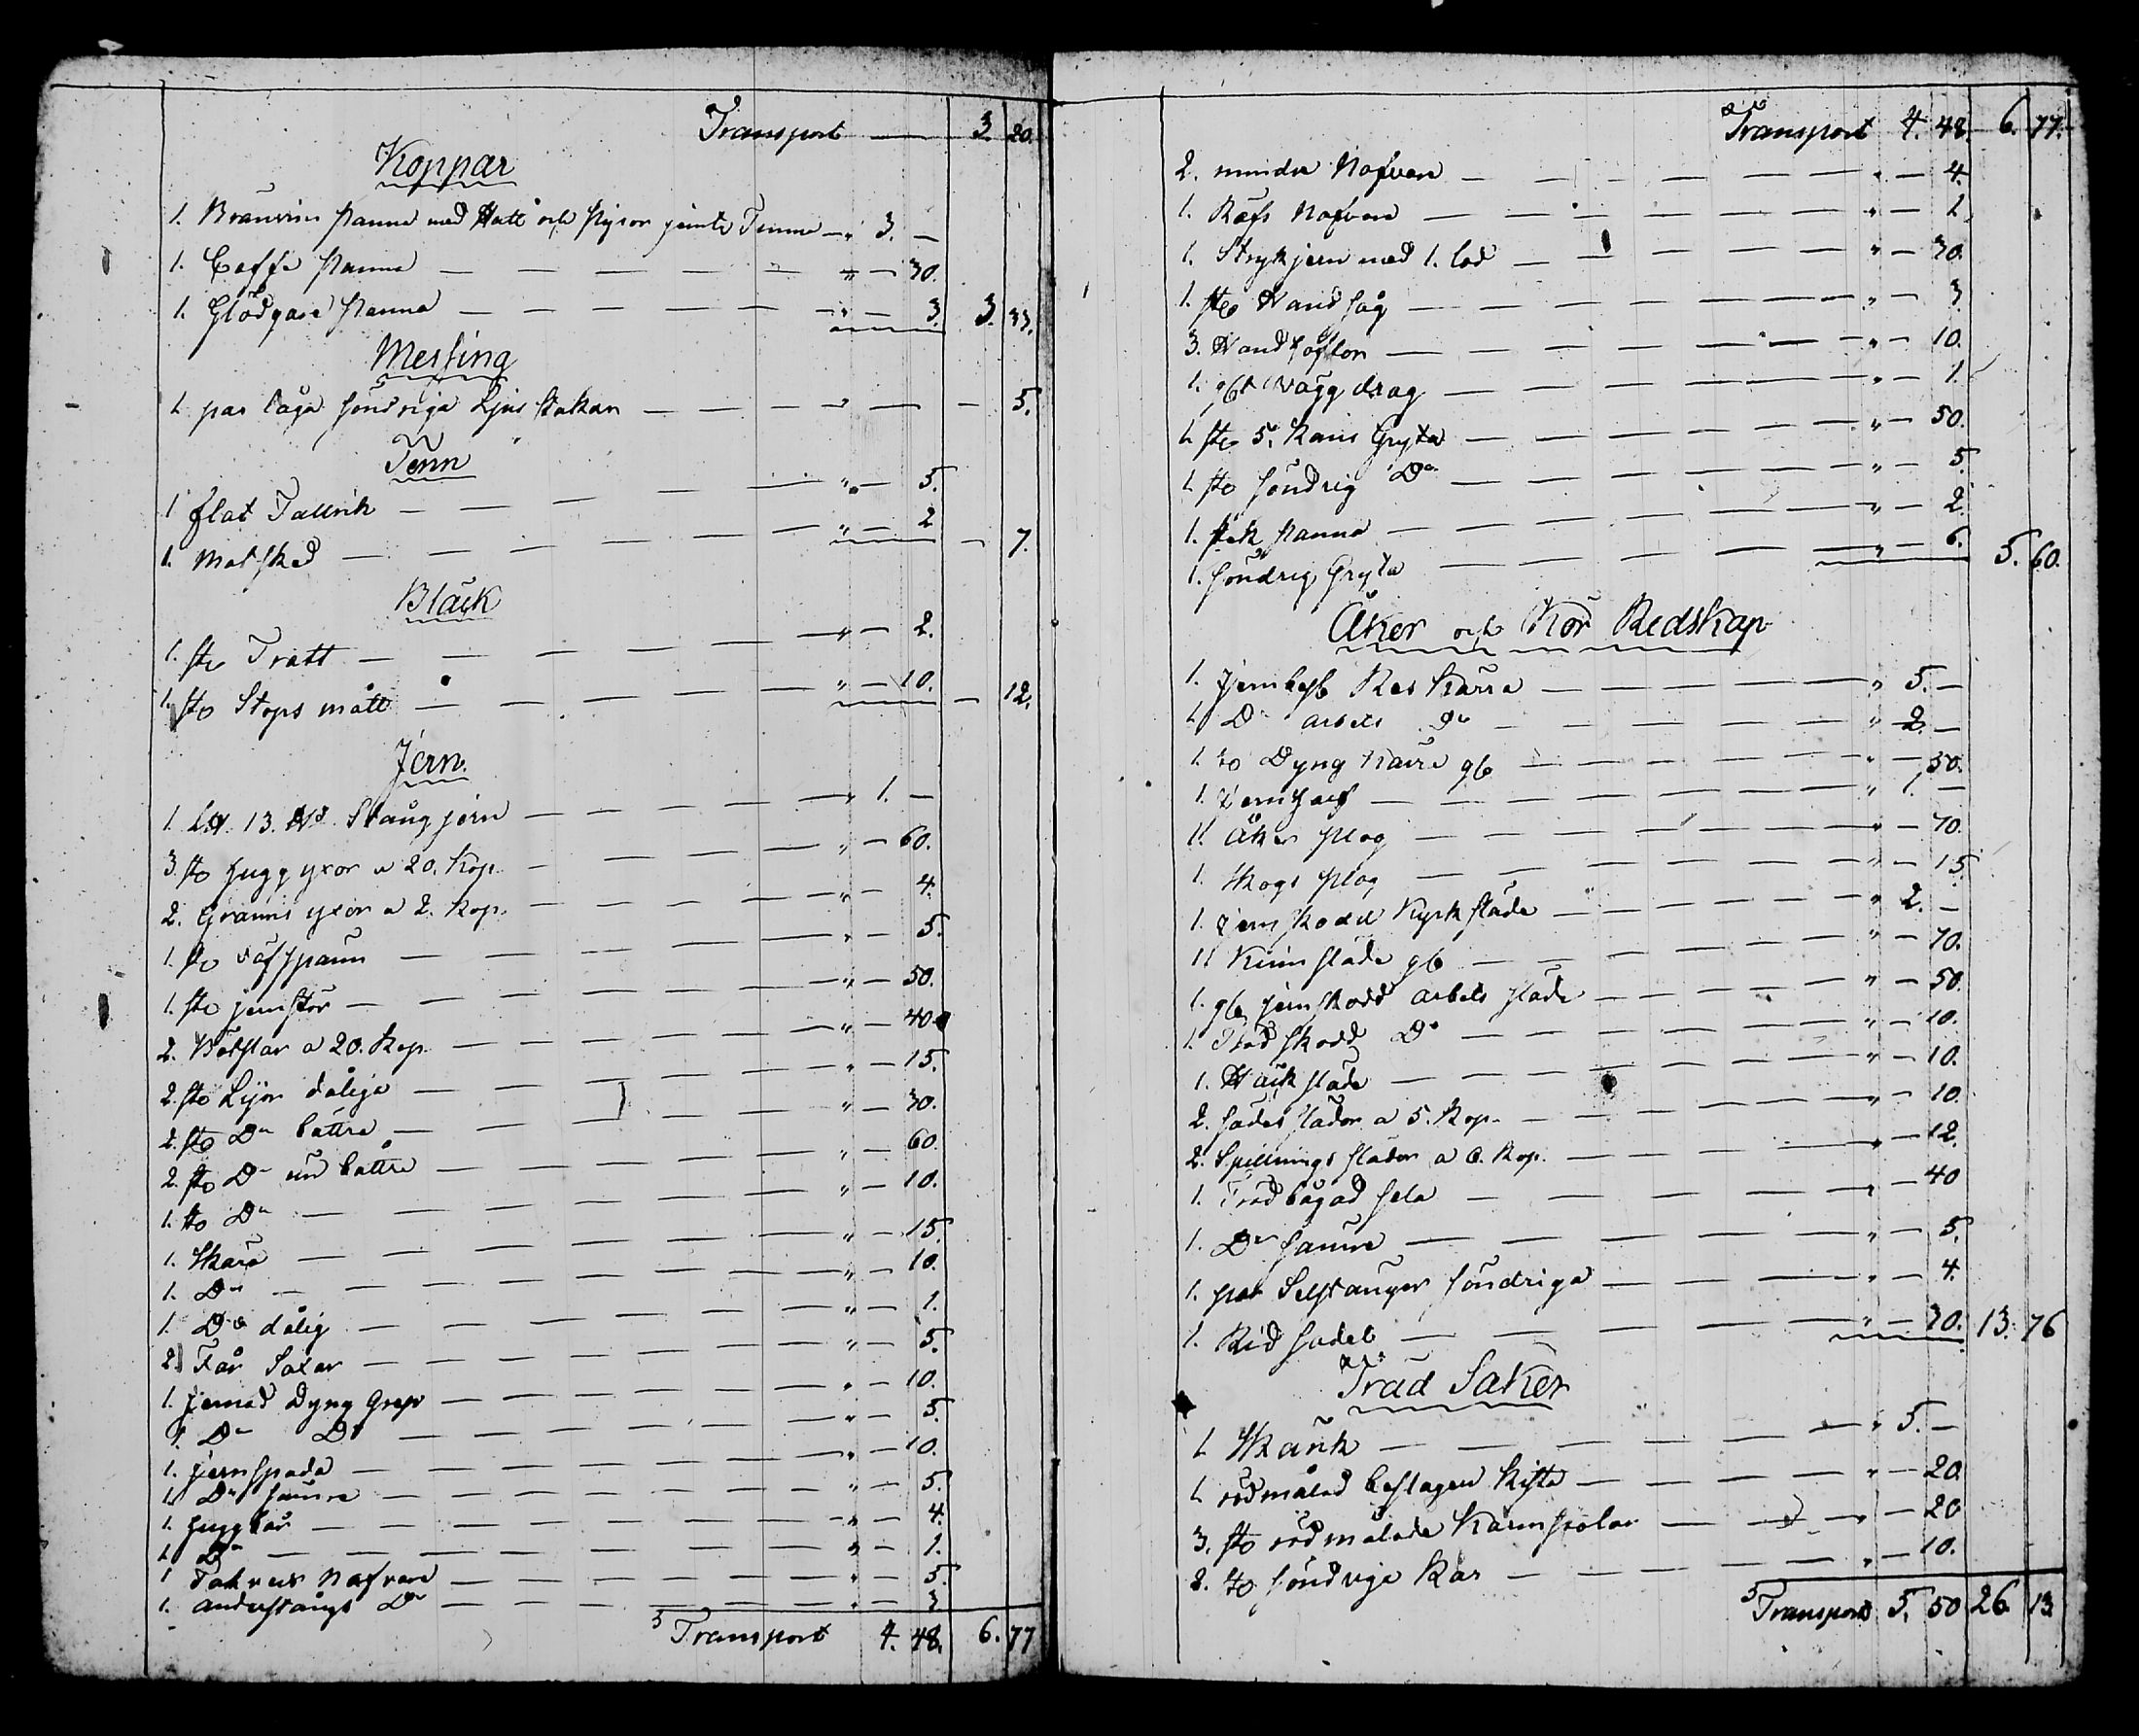 Transport — 3 20.
Koppar
1. Bränvin Panna med Hatt och Pipor jemte Tunna — „ 3. —
1. Caffe Panna — „ — 30.
1. Glödgare Panna — „ — 3. 3. 33.
Messing
1. par låga söndriga Ljus stakar — „ — — 5.
Tenn
1 flat Tallrik — „ — 5.
1. Matsked — „ — 2 — 7.
Bläck
1. st. Tratt — „ — 2.
1. st. Stops mått — „ — 10. — 12.
Jern.
1. L℔ 13. ℔ Stång jern — „ 1. —
3. st. hugg yxor a 20. Kop. — „ — 60.
2. yxor a 2. Kop. — „ — 4.
1. st. — „ — 5.
1. st. jernstör — „ — 50.
2. a 20. Kop. — „ — 40.
2. st. Lijor dåliga — „ — 15.
2. st. Do bättre — „ — 30.
2. st. Do än bättre — „ — 60
1. st. Do — „ — 10.
1. Skära — „ — 15.
1. Do — „ — 10.
1. Do dålig — „ — 1.
2. Får Saxar — „ — 5.
1. Jernad Dyng Grep — „ — 10.
1. Do Do — „ — 5.
1. jernspada — „ — 10.
1. Do sämre — „ — 5.
1. — „ — 4.
1. Do — „ — 1.
1 Nafvare — „ — 5.
1. Do — „ — 3
Transport 4. 48. 6. 77
Transport 4. 48. 6. 77.
2. mindre Nafvare — „ — 4.
1. Nafvare — „ — 1.
1. Strykjern med 1. lod — „ — 30.
1. st. Handsåg — „ — 3.
3. Hand — „ — 10.
1. gl. — „ — 1.
1. st. 5. Kans Gryta — „ — 50.
1. st. söndrig Do — „ — 5.
1. Stek Panna — „ — 2.
1. söndrig Gryta — „ — 6. 5. 60.
Åker och Kör Redskap
1. Jernbesl. Res Kärra — „ 5. —
1. Do arbets Do — „ 2. —
1. st. Dyng Kärra gl. — „ — 50.
1. — „ 1. —
1. Åker plog — „ — 70.
1. Skogs plog — „ — 15
1. jernskodd Kyrk släde — „ 2. —
1. släde gl. — „ — 70.
1. gl. jernskodd arbets släde — „ — 50.
1. Träd skodd Do — „ — 10.
1. Häck släde — „ — 10.
2. slädor a 5. Kop. — „ — 10.
2. Spillnings slädor a 6. Kop. — „ — 12.
1. Trädbågad sela — „ — 40
1. Do sämre — „ — 5.
1. par söndriga — „ — 4.
1. Rid sadel — „ — 30. 13. 76
Träd Saker
1. Skänk — „ 5. —
1. rödmålad beslagen Kista — „ — 20.
3. st. rödmålade Karmstolar — „ — 20
2. st. söndriga Kar — „ — 10.
Transport 5. 50 26. 13.